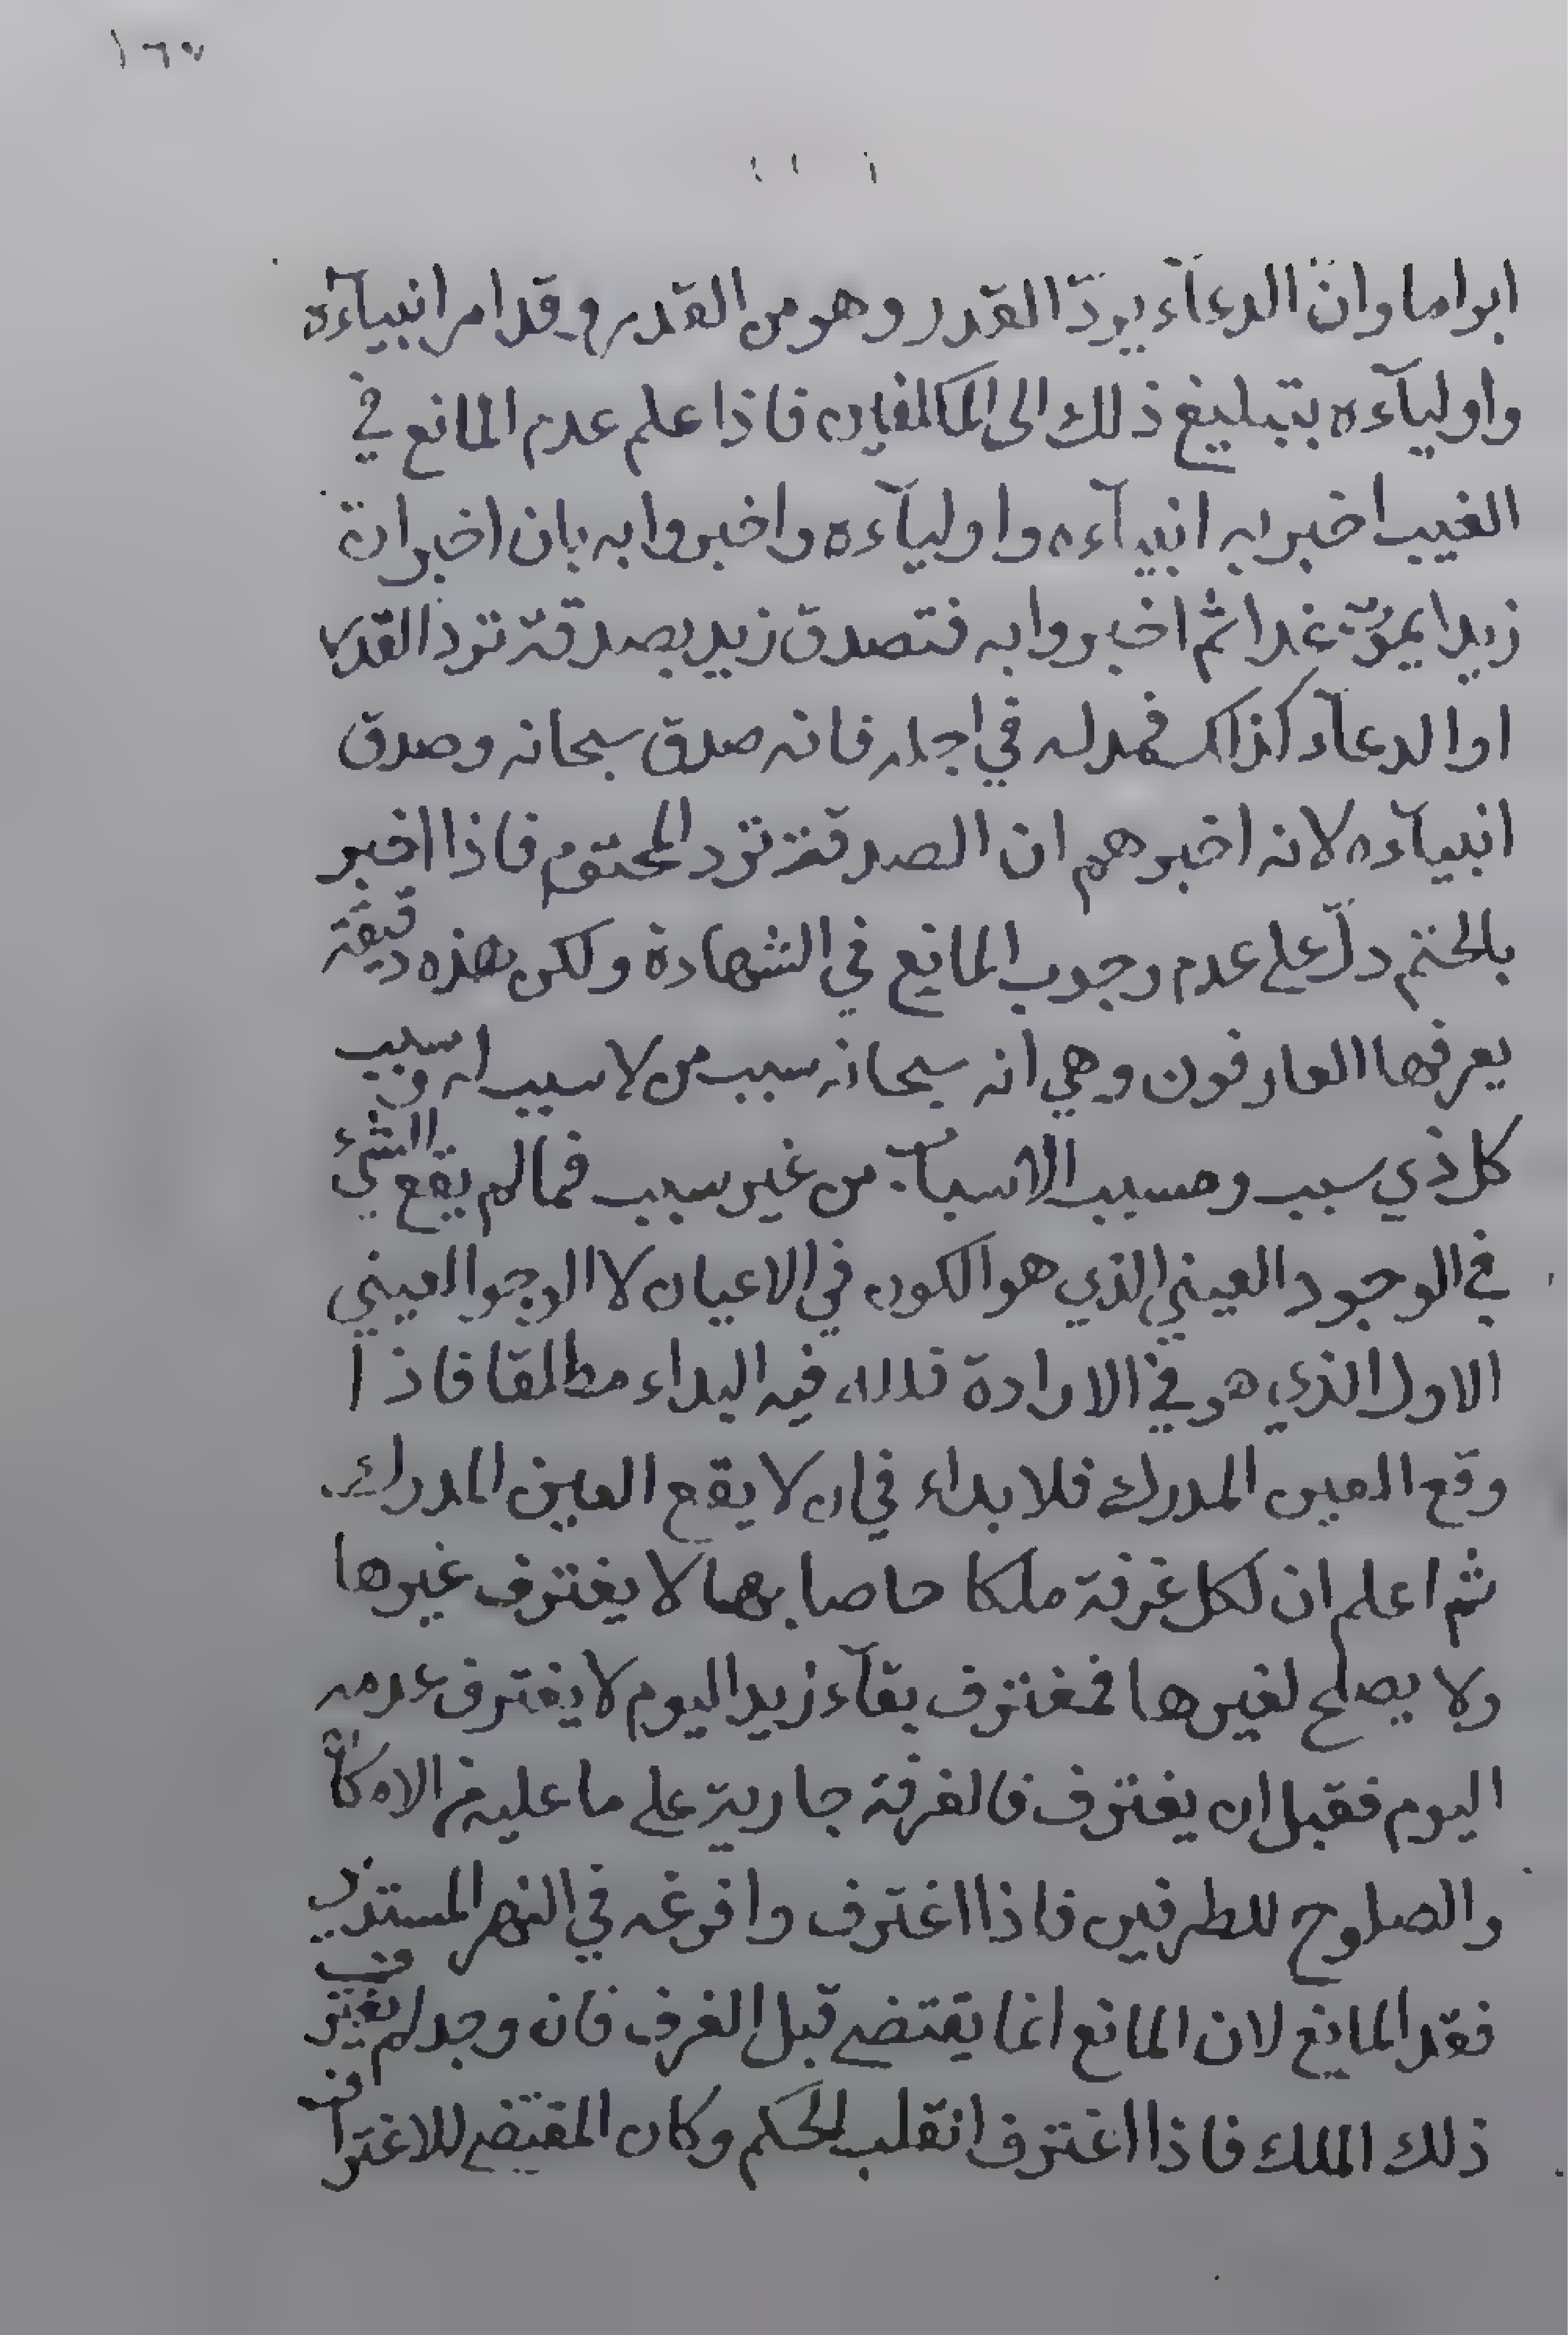 ١٦٧
ابراما وانّ الدعآء يردّ القدر وهو من القدر وقد امر انبيآءه
واوليآءه بتبليغ ذلك الى المكلفين فاذا علم عدم المانع في
الغيب اخبر به انبيآءه واوليآءه واخبروا به بان اخبر انّ
زيدا يموت غدا ثم اخبروا به فتصدق زيد بصدقة ترد القدر
او الدعآء كذلك فمد له في اجله فانه صدق سبحانه وصدق
انبيآءه لانه اخبرهم ان الصدقة ترد المحتوم فاذا اخبر
بالحتم دلّ على عدم وجوب المانع في الشهادة ولكن هذه دقيقة
يعرفها العارفون وهي انه سبحانه سبب من لا سبب له وسبب
كل ذي سبب ومسبب الاسباب من غير سبب فما لم يقع الشئ
في الوجود العيني الذي هو الكون في الاعيان لا الوجوا العيني
الاول الذي هو في الارادة فلله فيه البداء مطلقا فاذا
وقع العين المدرك فلا بداء في ان لا يقع العين المدرك
ثم اعلم ان لكل غرفة ملكا خاصا بها لا يغترف غيرها
ولا يصلح لغيرها فمغترف بقآء زيد اليوم لا يغترف عدمه
اليوم فقبل ان يغترف فالغرفة جارية على ما عليه من الامكان
والصلوح للطرفين فاذا اغترف وافرغه في النهر المستدير
فقد المانع لان المانع انما يقتضي قبل الغرف فان وجد لم يغترف
ذلك الملك فاذا اغترف انقلب الحكم وكان المقتضي للاغتراف